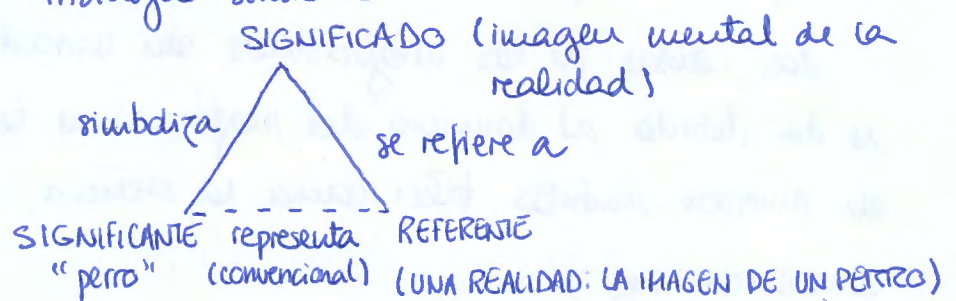 SIGNIFICADO (imagen mental de la
realidad)
simboliza
se refiere a
SIGNIFICANTE representa REFERENTE
"perro" (convencional) (UNA REALIDAD: LA IMAGEN DE UN PERRO)